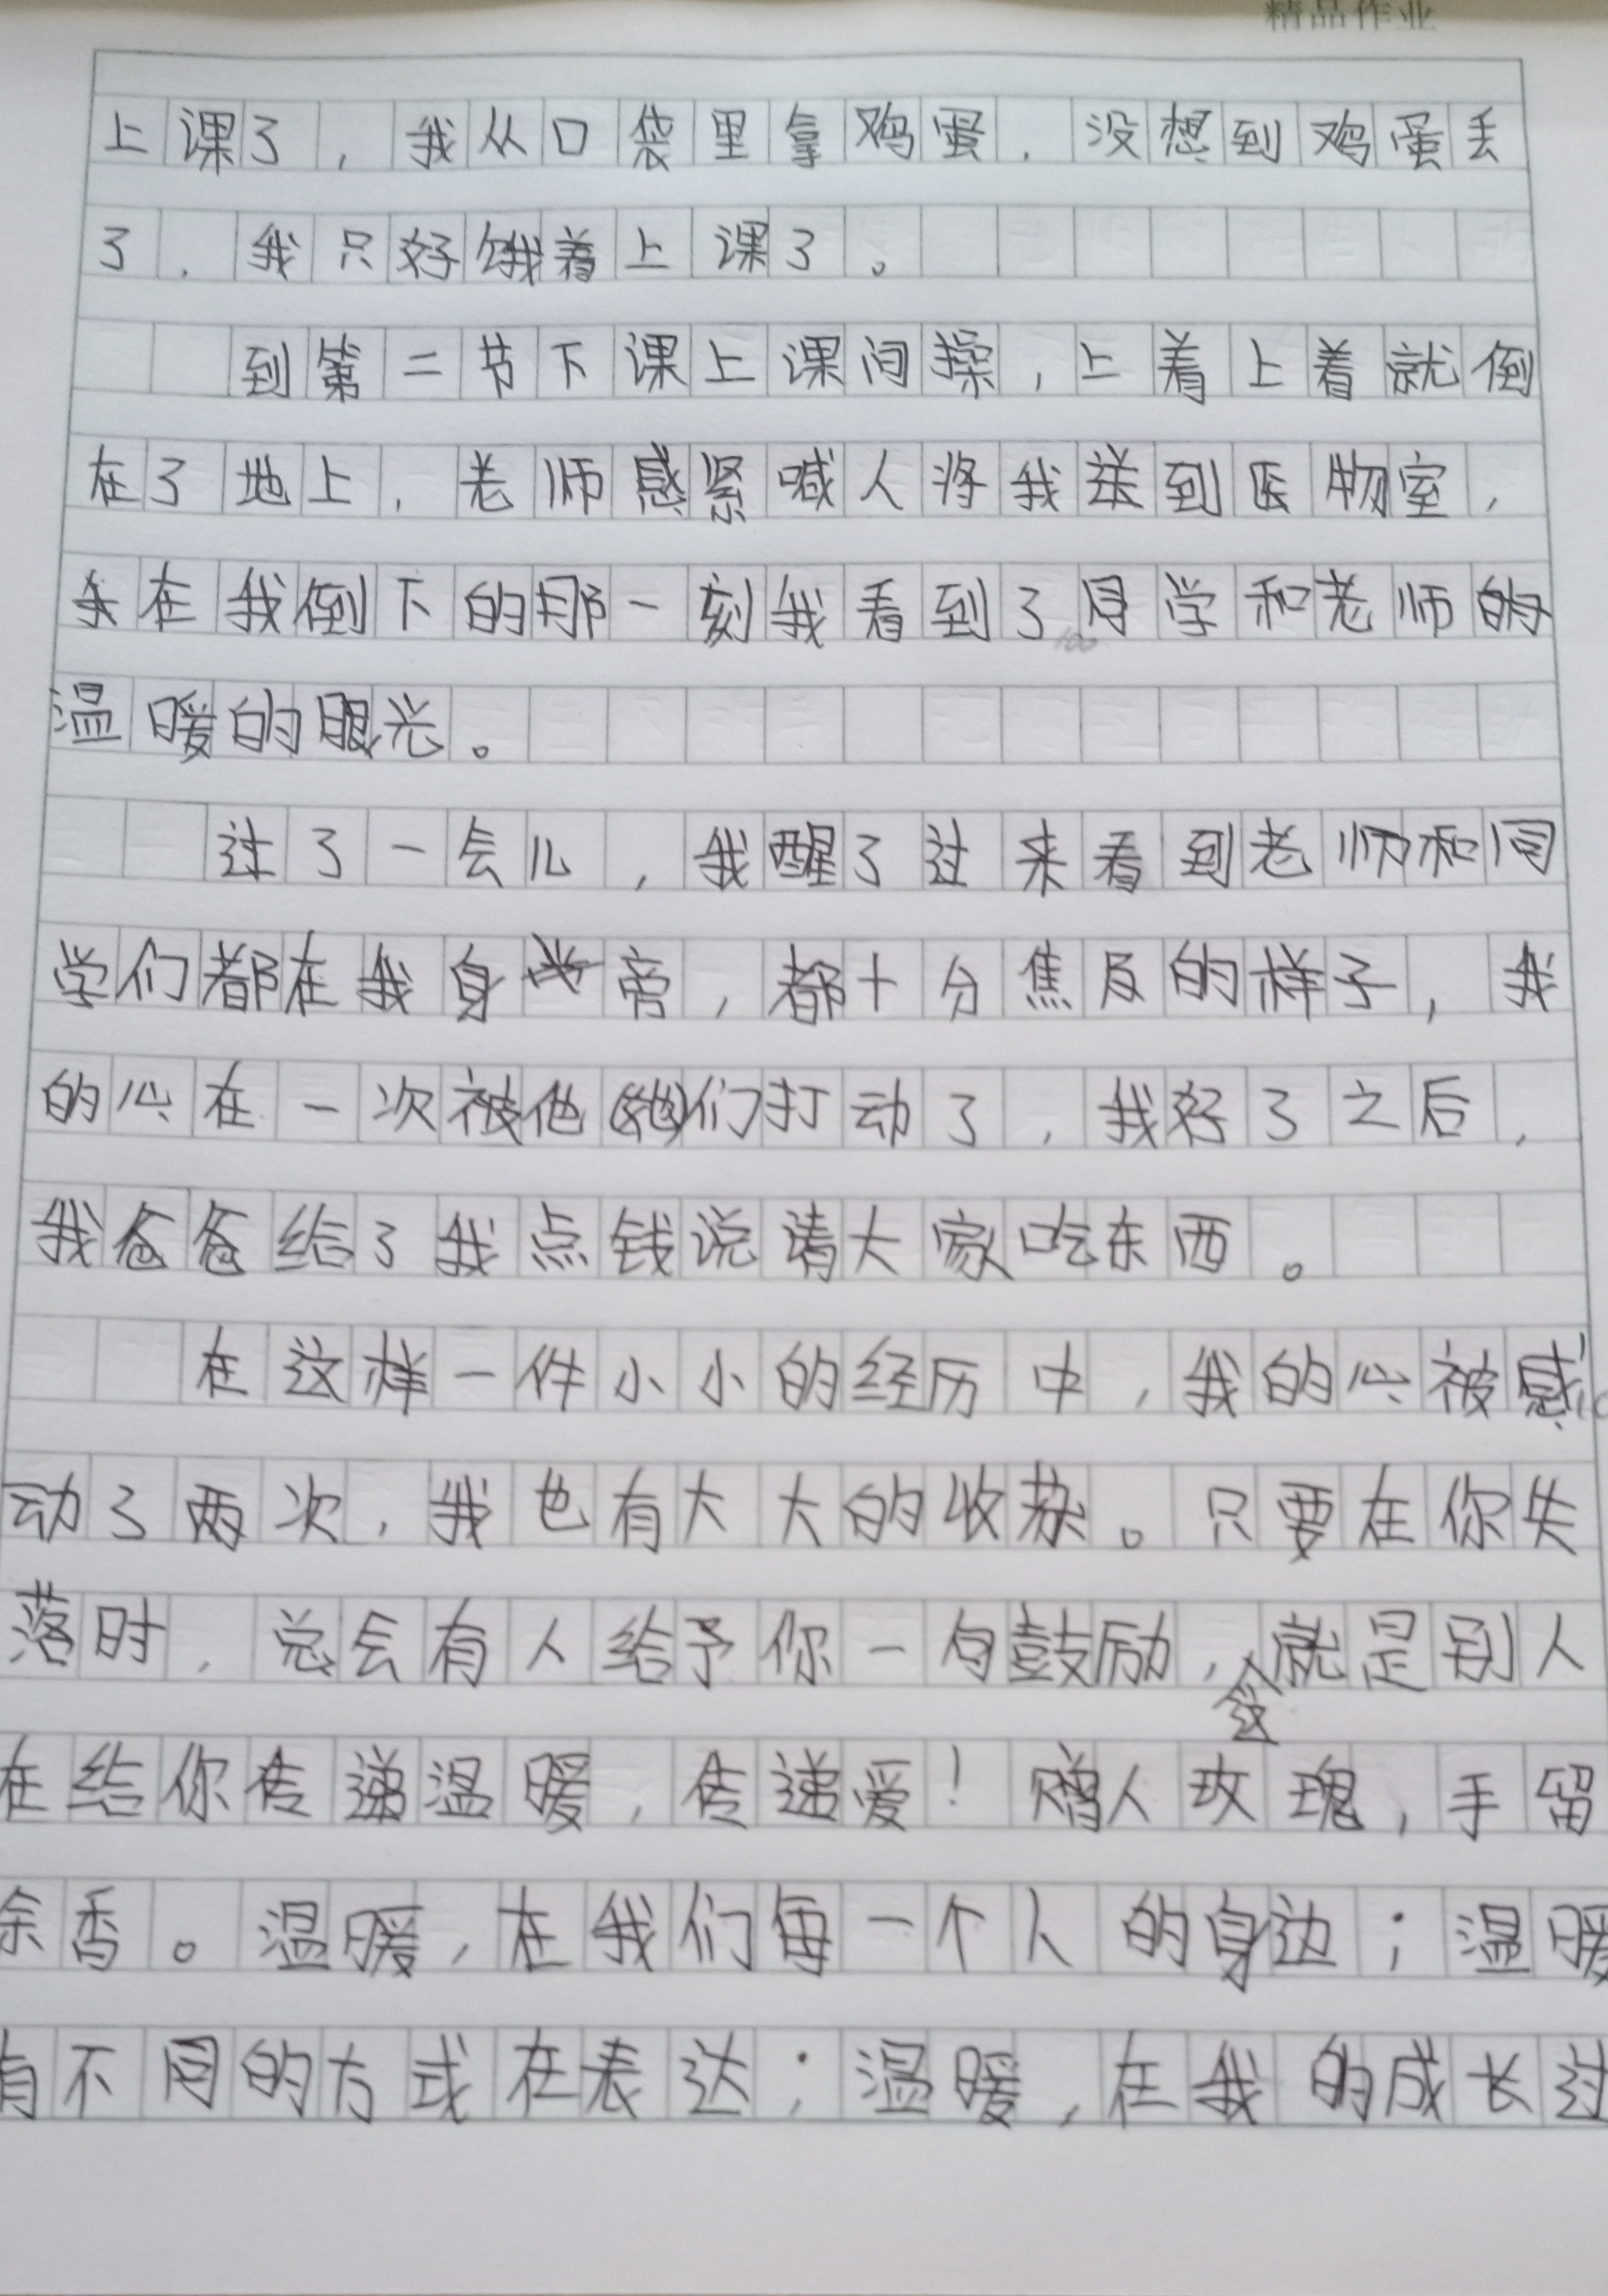 精品作业
上课了，我从口袋里拿鸡蛋，没想到鸡蛋丢
了，我只好饿着上课了。
到第二节下课上课间操，上着上着就倒
在了地上，老师感紧喊人将我送到医物室，
在我倒下的那一刻我看到了同学和老师的
温暖的眼光。
过了一会儿，我醒了过来看到老师和同
学们都在我身旁，都十分焦及的样子，我
的心在一次被他(她)们打动了，我好了之后，
我爸爸给了我点钱说请大家吃东西。
在这样一件小小的经历中，我的心被感
动了两次，我也有大大的收获。只要在你失
落时，总会有人给予你一句鼓励，这就是别人
在给你传递温暖，传递爱！赠人玫瑰，手留
余香。温暖，在我们每一个人的身边；温暖
有不同的方式在表达；温暖，在我的成长过